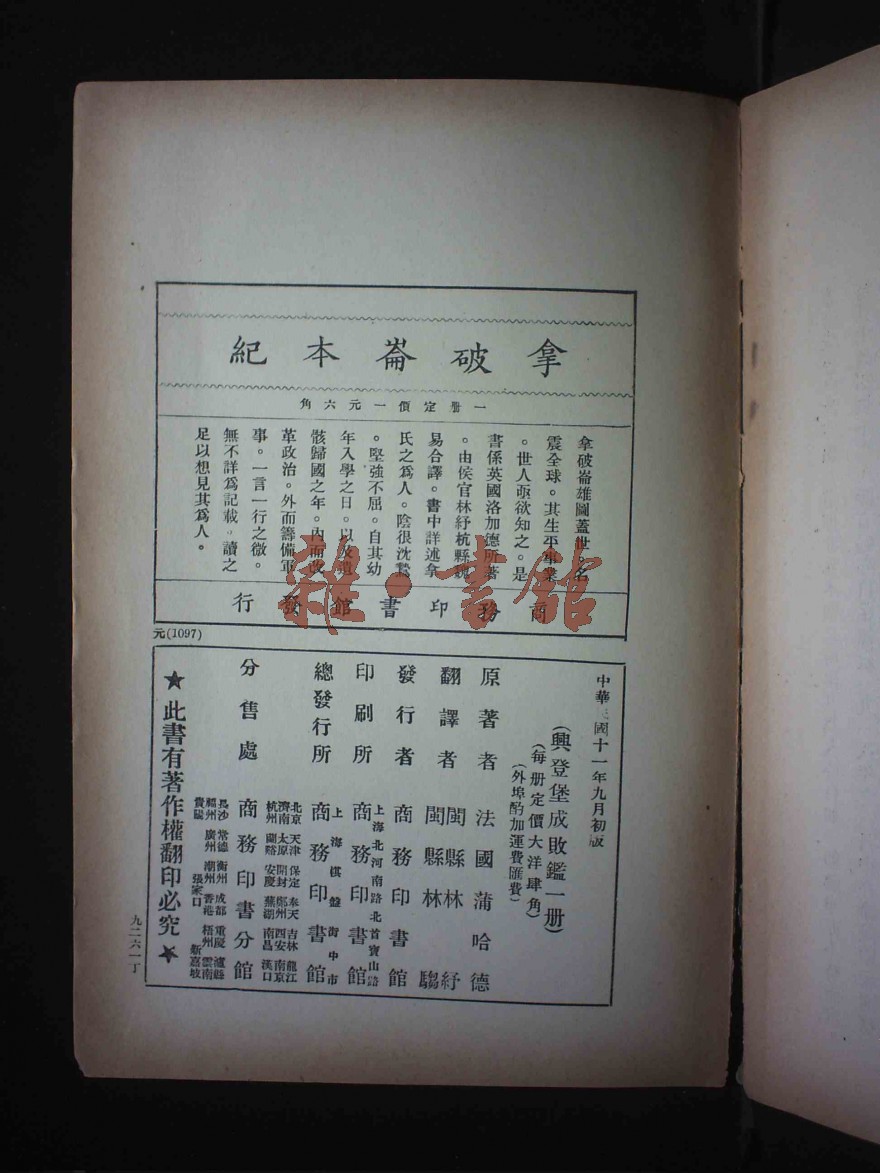 拿破崙本紀
一册定價一元六角
拿破崙雄圖蓋世。名
震全球。其生平事業
。世人亟欲知之。是
書係英國洛加德所著
。由侯官林紓杭縣魏
易合譯。書中詳述拿
氏之爲人。陰很沈鷙
。堅強不屈。自其幼
年入學之日。以及遺
骸歸國之年。內而改
革政治。外而籌備軍
事。一言一行之微。
無不詳爲記載。讀之
足以想見其爲人。
商務印書館發行
雜·書館
元(1097)
中華 國十一年九月初版
(興登堡成敗鑑一册)
(每册定價大洋肆角)
(外埠酌加運費匯費)
原著者 法國蒲哈德
翻譯者 閩縣林紓
閩縣林驺
發行者 商務印書館
上海北河南路北首寶山路
印刷所 商務印書館
上海棋盤街中市
總發行所 商務印書館
分售處 商務印書分館
北京 天津 保定 奉天 吉林 龍江
濟南 太原 開封 鄭州 西安 南京
杭州 蘭谿 安慶 蕪湖 南昌 漢口
長沙 常德 衡州 成都 重慶 瀘縣
福州 廣州 潮州 香港 梧州 雲南
貴陽 張家口 新嘉坡
★此書有著作權翻印必究★
九二六一丁